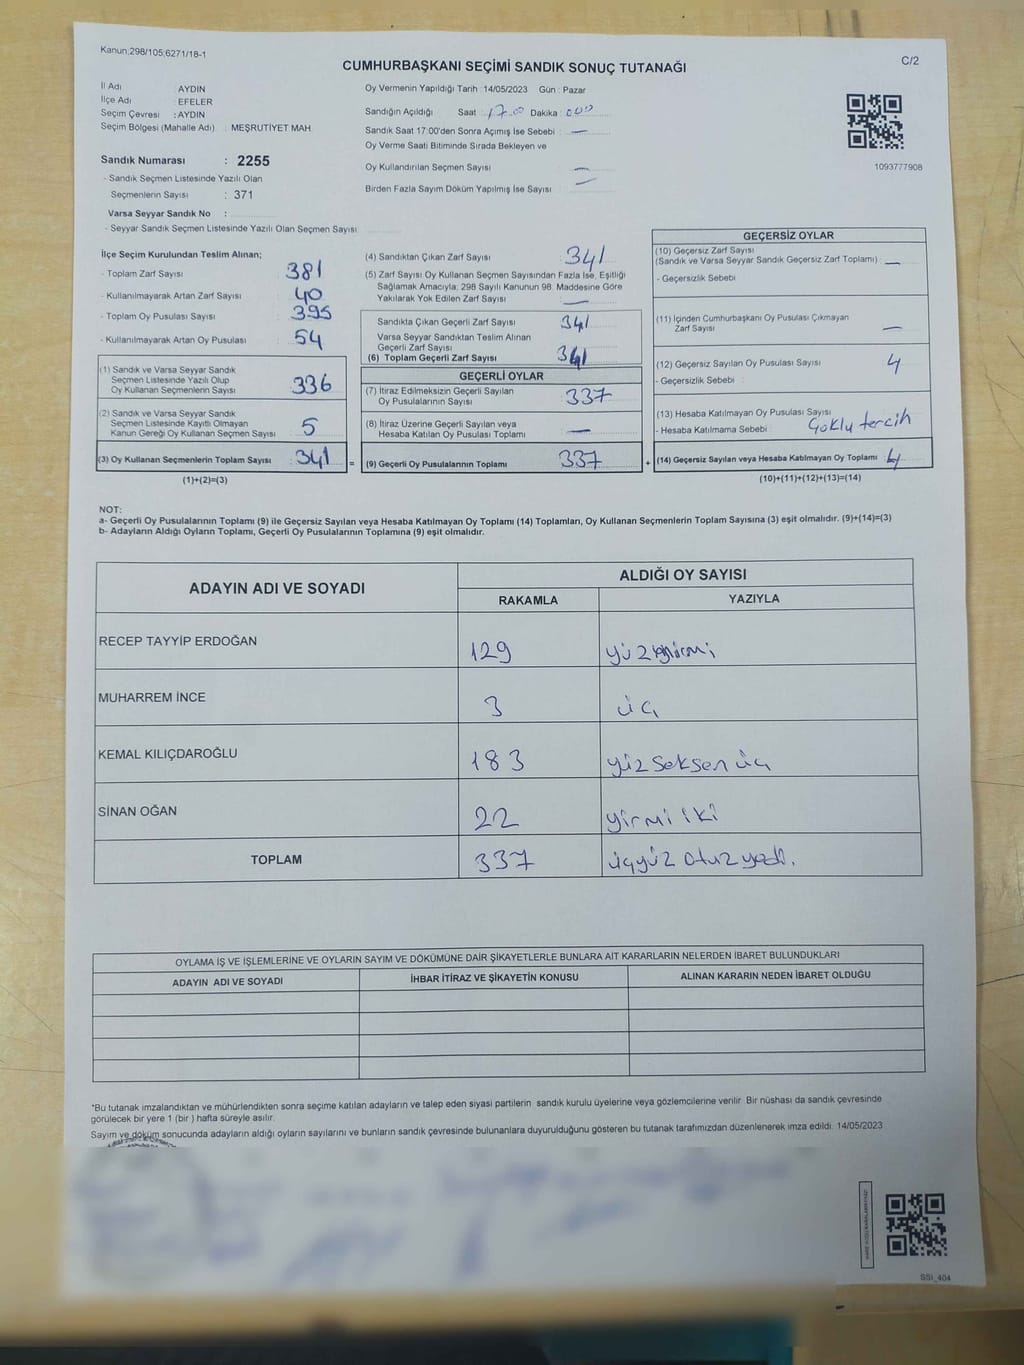 Kanun;298/105;6271/18-1
C/2
CUMHURBAŞKANI SEÇİMİ SANDIK SONUÇ TUTANAĞI
İl Adı : AYDIN
İlçe Adı : EFELER
Seçim Çevresi : AYDIN
Seçim Bölgesi (Mahalle Adı) : MEŞRUTİYET MAH
Sandık Numarası : 2255
- Sandık Seçmen Listesinde Yazılı Olan
Seçmenlerin Sayısı : 371
Varsa Seyyar Sandık No :
- Seyyar Sandık Seçmen Listesinde Yazılı Olan Seçmen Sayısı:
Oy Vermenin Yapıldığı Tarih : 14/05/2023 Gün : Pazar
Sandığın Açıldığı Saat : 17.00 Dakika : 000
Sandık Saat 17:00'den Sonra Açımış İse Sebebi : —
Oy Verme Saati Bitiminde Sırada Bekleyen ve
Oy Kullandırılan Seçmen Sayısı : —
Birden Fazla Sayım Döküm Yapılmış İse Sayısı : —
1093777908
İlçe Seçim Kurulundan Teslim Alınan;
- Toplam Zarf Sayısı : 381
- Kullanılmayarak Artan Zarf Sayısı : 40
- Toplam Oy Pusulası Sayısı : 395
- Kullanılmayarak Artan Oy Pusulası : 54
(1) Sandık ve Varsa Seyyar Sandık
Seçmen Listesinde Yazılı Olup
Oy Kullanan Seçmenlerin Sayısı : 336
(2) Sandık ve Varsa Seyyar Sandık
Seçmen Listesinde Kayıtlı Olmayan
Kanun Gereği Oy Kullanan Seçmen Sayısı : 5
(3) Oy Kullanan Seçmenlerin Toplam Sayısı : 341 =
(1)+(2)=(3)
(4) Sandıktan Çıkan Zarf Sayısı : 341
(5) Zarf Sayısı Oy Kullanan Seçmen Sayısından Fazla İse, Eşitliği
Sağlamak Amacıyla; 298 Sayılı Kanunun 98. Maddesine Göre
Yakılarak Yok Edilen Zarf Sayısı : —
Sandıkta Çıkan Geçerli Zarf Sayısı : 341
Varsa Seyyar Sandıktan Teslim Alınan
Geçerli Zarf Sayısı
(6) Toplam Geçerli Zarf Sayısı : 341
GEÇERLİ OYLAR
(7) İtiraz Edilmeksizin Geçerli Sayılan
Oy Pusulalarının Sayısı : 337
(8) İtiraz Üzerine Geçerli Sayılan veya
Hesaba Katılan Oy Pusulası Toplamı : —
(9) Geçerli Oy Pusulalarının Toplamı : 337 +
GEÇERSİZ OYLAR
(10) Geçersiz Zarf Sayısı
(Sandık ve Varsa Seyyar Sandık Geçersiz Zarf Toplamı) : —
- Geçersizlik Sebebi
(11) İçinden Cumhurbaşkanı Oy Pusulası Çıkmayan
Zarf Sayısı : —
(12) Geçersiz Sayılan Oy Pusulası Sayısı : 4
- Geçersizlik Sebebi
(13) Hesaba Katılmayan Oy Pusulası Sayısı :
- Hesaba Katılmama Sebebi : Çoklu tercih
(14) Geçersiz Sayılan veya Hesaba Katılmayan Oy Toplamı : 4
(10)+(11)+(12)+(13)=(14)
NOT:
a- Geçerli Oy Pusulalarının Toplamı (9) ile Geçersiz Sayılan veya Hesaba Katılmayan Oy Toplamı (14) Toplamları, Oy Kullanan Seçmenlerin Toplam Sayısına (3) eşit olmalıdır. (9)+(14)=(3)
b- Adayların Aldığı Oyların Toplamı, Geçerli Oy Pusulalarının Toplamına (9) eşit olmalıdır.
ADAYIN ADI VE SOYADI ALDIĞI OY SAYISI
RAKAMLA YAZIYLA
RECEP TAYYİP ERDOĞAN 129 yüz
MUHARREM İNCE 3 üç
KEMAL KILIÇDAROĞLU 183 yüz seksen üç
SİNAN OĞAN 22 yirmi iki
TOPLAM 337 üçyüz otuz yedi.
OYLAMA İŞ VE İŞLEMLERİNE VE OYLARIN SAYIM VE DÖKÜMÜNE DAİR ŞİKAYETLERLE BUNLARA AİT KARARLARIN NELERDEN İBARET BULUNDUKLARI
ADAYIN ADI VE SOYADI İHBAR İTİRAZ VE ŞİKAYETİN KONUSU ALINAN KARARIN NEDEN İBARET OLDUĞU
*Bu tutanak imzalandıktan ve mühürlendikten sonra seçime katılan adayların ve talep eden siyasi partilerin sandık kurulu üyelerine veya gözlemcilerine verilir. Bir nüshası da sandık çevresinde
görülecek bir yere 1 (bir ) hafta süreyle asılır.
Sayım ve döküm sonucunda adayların aldığı oyların sayılarını ve bunların sandık çevresinde bulunanlara duyurulduğunu gösteren bu tutanak tarafımızdan düzenlenerek imza edildi. 14/05/2023
SSI_404